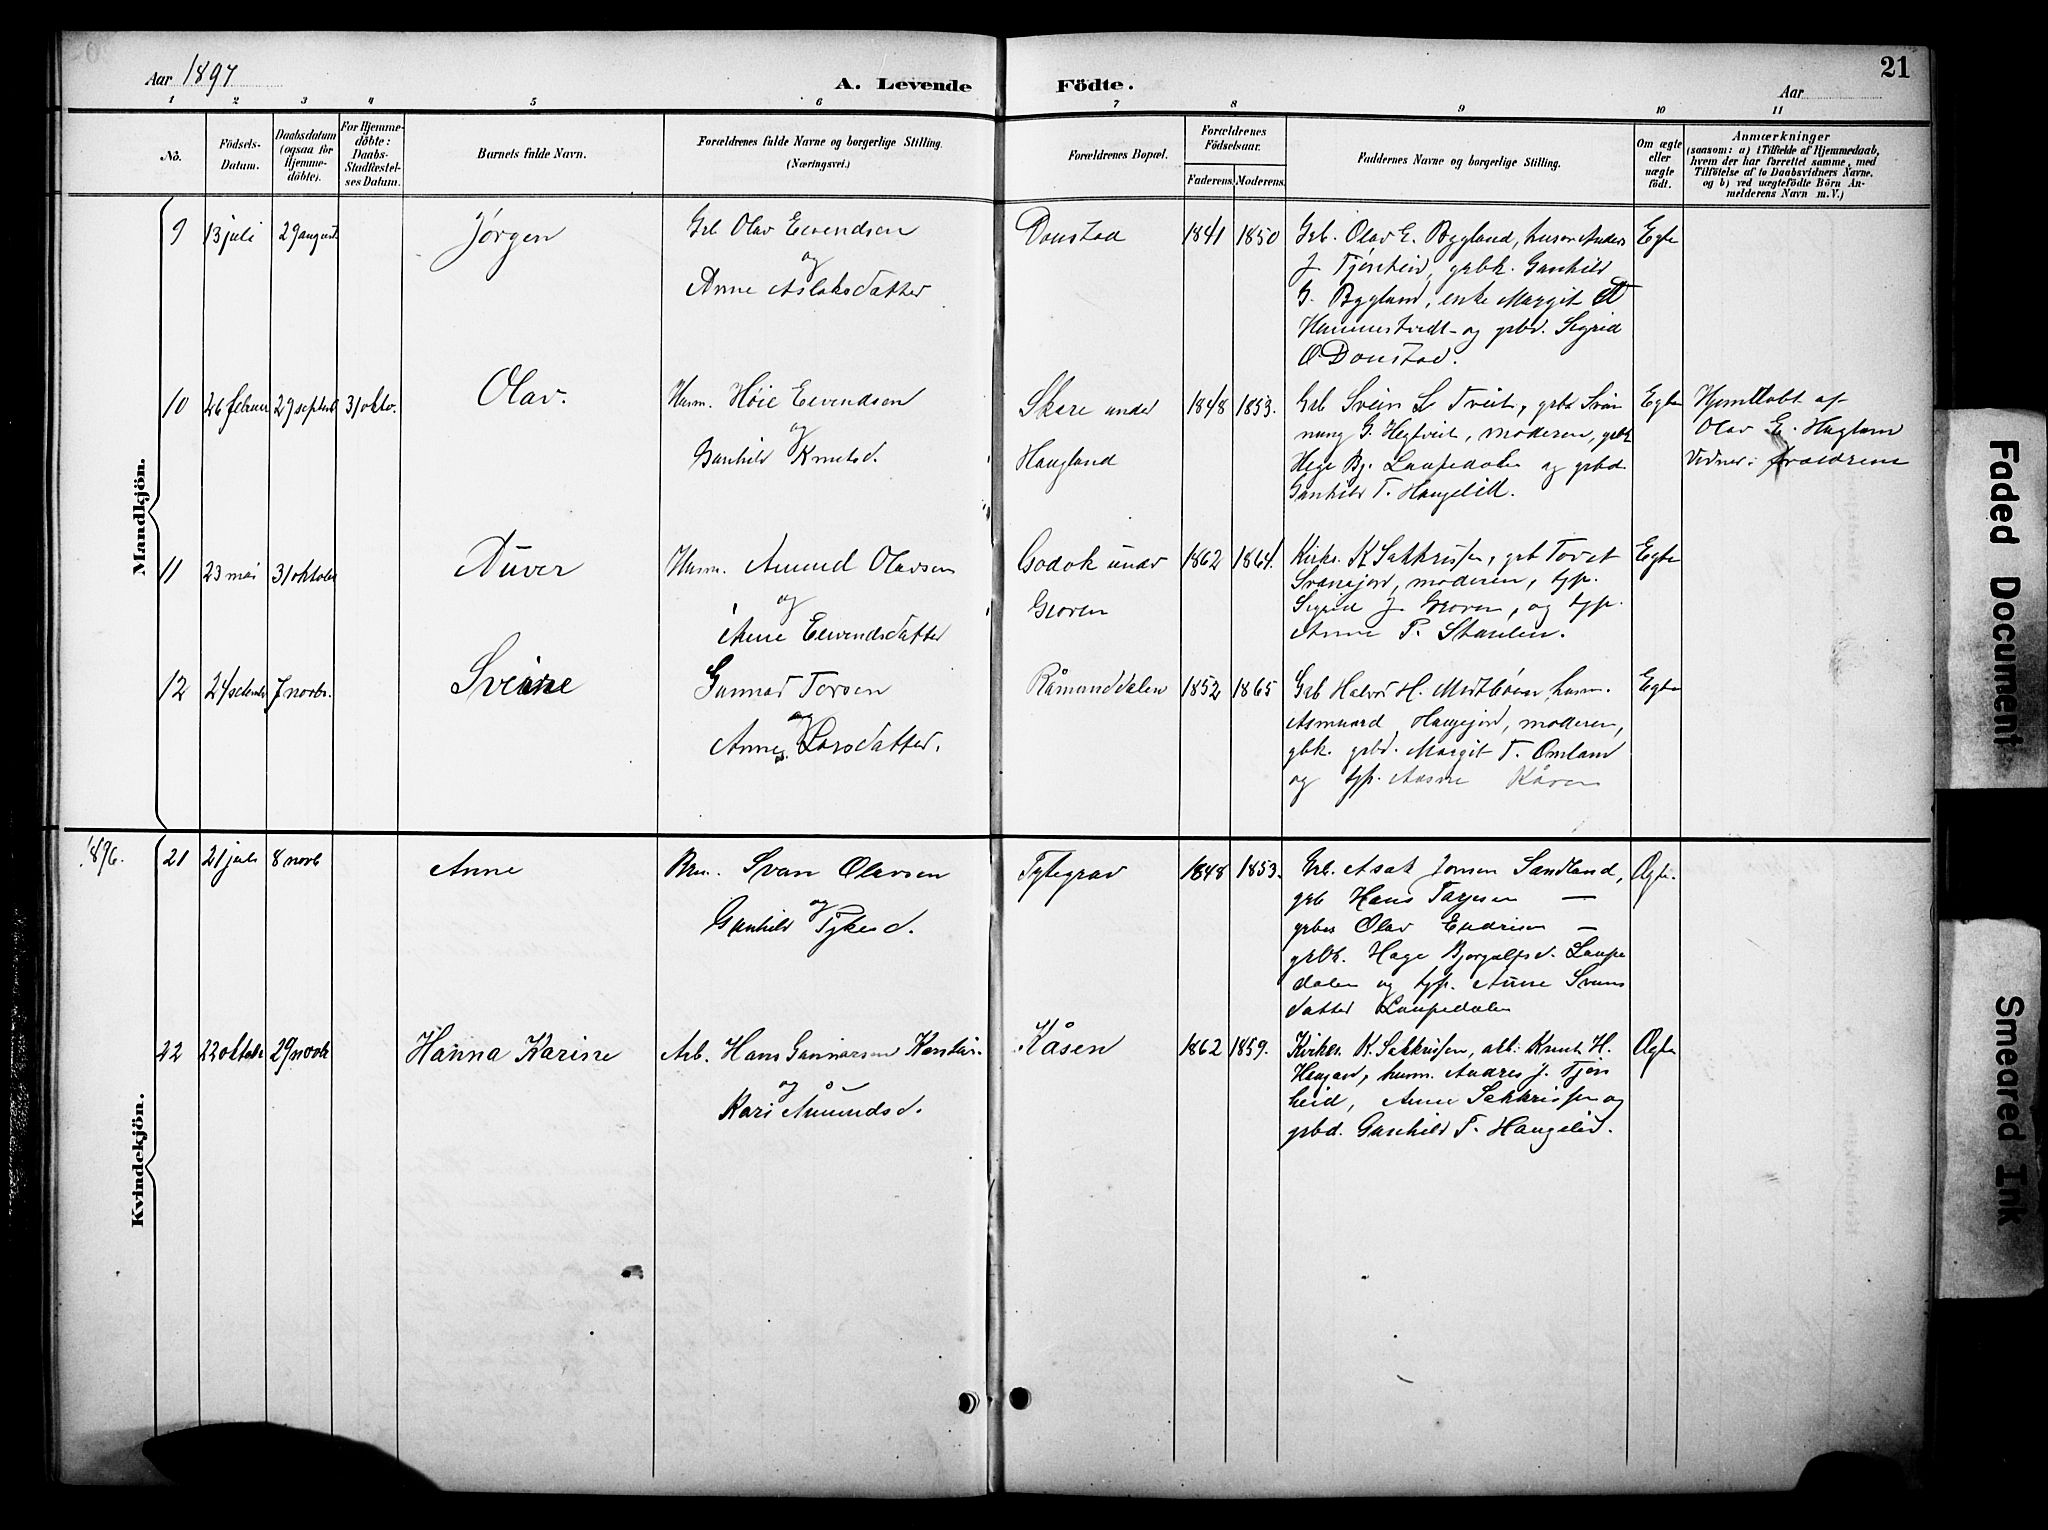 21
Aar 1897
A. Levende
Födte.
Aar
1 2 3 4 5 6 7 8 9 10 11
No.
Födsels-
Datum.
Daabsdatum
(ogsaa for
Hjemme-
döbte).
For Hjemme-
döbte:
Daabs-
Stadfæstel-
ses Datum.
Barnets fulde Navn.
Forældrenes fulde Navne og borgerlige Stilling.
(Næringsvei.)
Forældrenes Bopæl.
Forældrenes
Födselsaar.
Faderens. Moderens.
Faddernes Navne og borgerlige Stilling.
Om ægte
eller
uægte
födt.
Anmærkninger
(saasom: a) i Tilfælde af Hjemmedaab,
hvem der har forrettet samme, med
Tilföielse af to Daabsvidners Navne.
og b) ved uægtefödte Börn An-
melderens Navn m.V.)
Mandkjön.
9
13 juli
29 august
Jørgen
Grb Olav Eivendsen
og
Anne Aslaksdatter
Donstad
1841
1850
Grb. Olav E. Bygland, Anders
J. Tjønheid, grbk. Gunhild
G. Bygland, enke Margit
og grbd. Sigrid
O. Donstad.
Egte
10
26 februar
29 septemb
31 okto.
Olav.
Husm. Høie Eivendsen
og
Gunhild Knutsd.
Skare under
Haugland
1848
1853.
Grb Svein S. Tveit, grbk
G. Hegtveit, moderen, grbk
Hege Bj. Laupedalen og grbd
Gunhild T. Haugelid.
Egte
Hjemdøbt af
Olav E.
Vidner: forældrene
11
23 mai
31 oktober
Auver
Husm. Amund Olavsen
og
Anne Eivendsdatter
Godok under
Groven
1862
1864.
Kirks. K Sakkrisen, grb Tovet
Svanejord, moderen, tjp.
Sigrid J. Groven, og tjp.
Anne T. Staulen.
Egte
12
24 septemb
7 novbr.
Sveine
Gunnar Torsen
og
Anne Larsdatter.
Råmunddalen
1852
1865
Grb Halvor H. Midtbøen husm.
Asmund Haugejord, moderen,
gbk. grbd. Margit T. Omland
og tjp. Aasne Kåven
Egte
1896.
Kvindekjön.
21
21 juli
8 novb
Anne
Brn. Svan Olavsen
og
Gunhild Tykesd.
Tytegrav
1848
1853.
Grb. Asak Jonsen Sandland,
grb Hans Tarjesen —
grbs Olav Endresen —
grbk. Hage Bjorgulfsd. Laupe
dalen og tjp. Anne Svans
datter Laupedalen
Ogte.
22
22 oktobe
29 novb
Hanna Karine
Arb. Hans Gunnarsen
og
Kari Amundsd.
Kåsen
1862
1859.
Kirkes. K. Sakkrisen, arb: Knut H.
Haugen, husm. Andres J. Tjøn
heid, Anne Sakkrisen og
grbd. Gunhild T. Haugelid.
Ogte
Faded Document
Smeared Ink